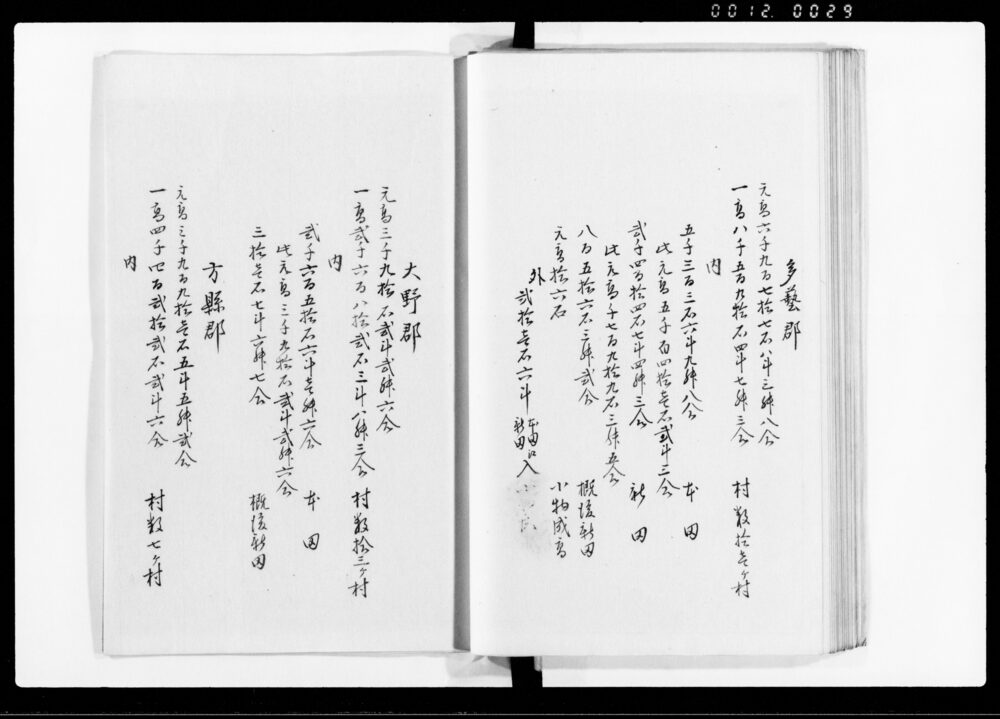 0012. 0029
多藝郡
元高六千九百七拾七石八斗三舛八合
一高八千五百九拾石四斗七舛三合 村数拾壱ヶ村
内
五千三百三石六斗九舛八合 本田
此元高五千百四拾壱石弐斗三合
弐千四百拾四石七斗四舛三合 新田
此元高千七百九拾九石三舛五合
八百五拾六石三舛弐合 概後新田
元高拾六石 小物成高
外 弐拾壱石六斗 本田新田口入
大野郡
元高三千九拾石弐斗弐舛六合
一高弐千六百八拾弐石三斗八舛三合 村数拾三ヶ村
内
弐千六百五拾石六斗壱舛六合 本田
此元高三千九拾石弐斗弐舛六合
三拾壱石七斗六舛七合 概後新田
方縣郡
元高三千九百九拾壱石五斗五舛弐合
一高四千四百弐拾弐石弐斗六合 村数七ヶ村
内